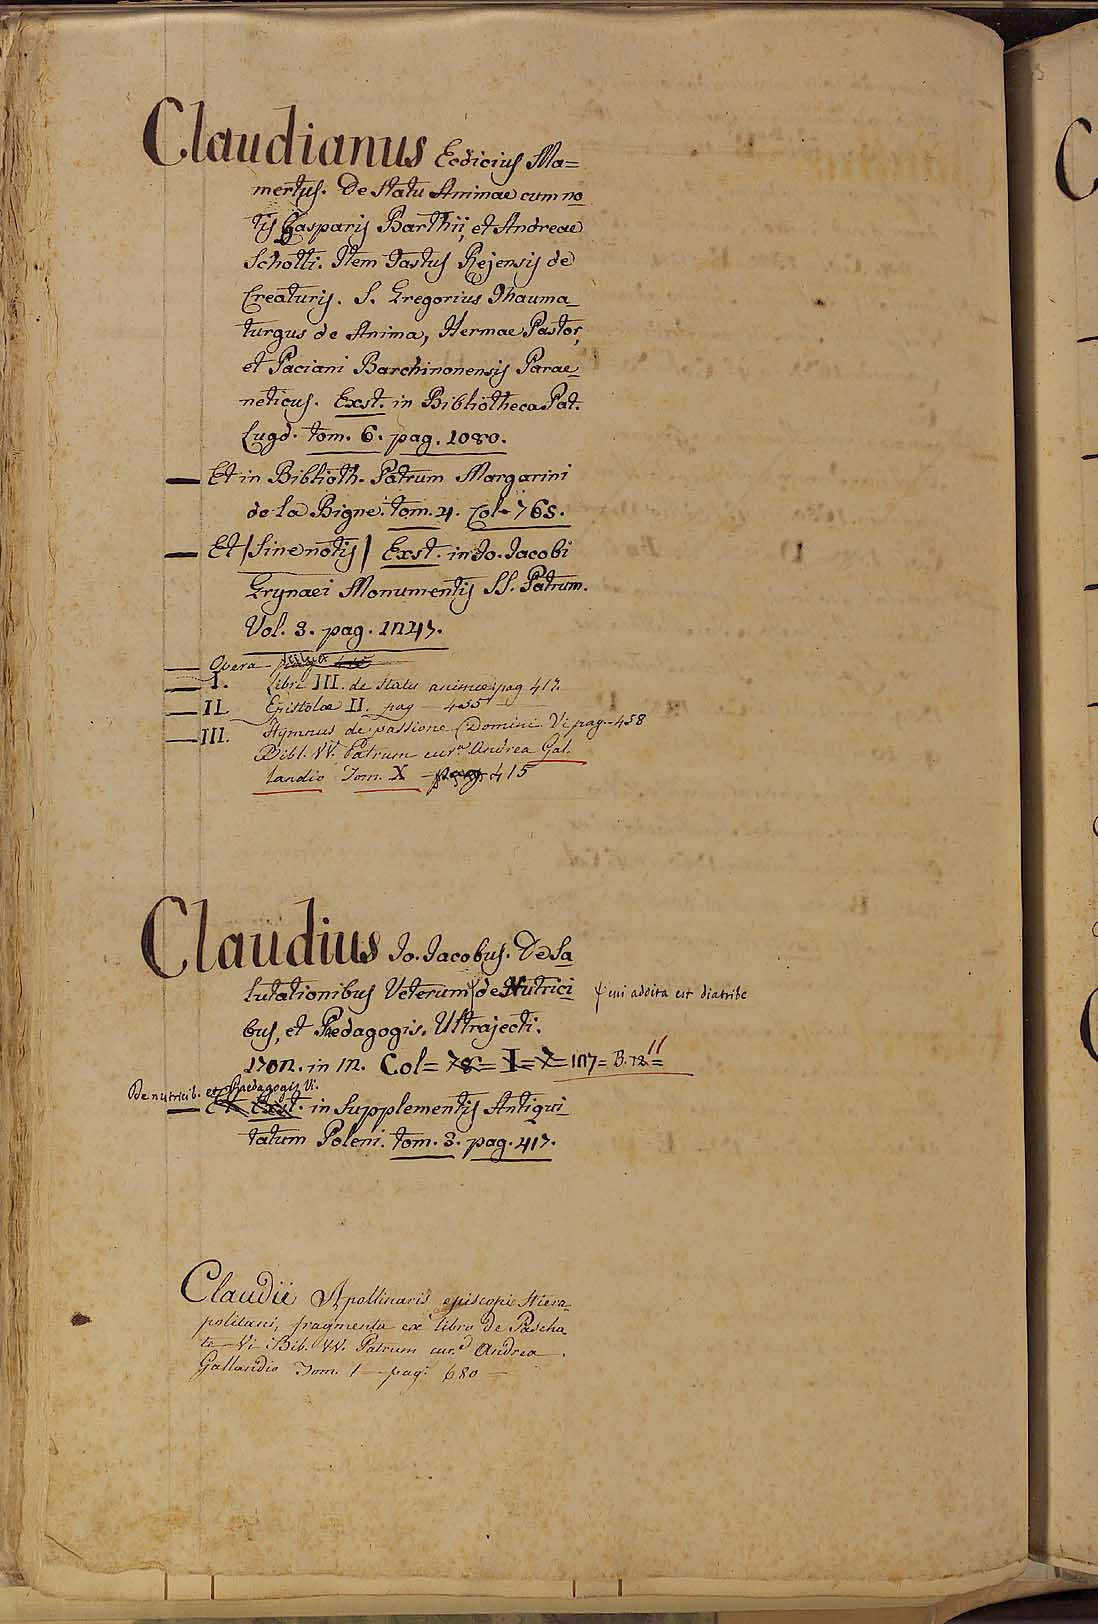 Claudianus Ecdicius Ma=
mertus. De Statu Animae cum no
tis Gasparis Barthii, et Andreae
Schotti. Item Fastus Rejensis de
Creaturis. S. Gregorius Thauma
turgus de Anima, Hermae Pastor,
et Paciani Barchinonensis Parae
neticus. Exst. in Bibliotheca Pat.
Lugd. tom. 6. pag. 1080.
— Et in Biblioth. Patrum Margarini
de la Bigne. tom. 4. Col= 765.
— Et / Sine notis / Exst. in Jo. Jacobi
Grynaei Monumentis SS. Patrum.
Vol. 3. pag. 1247.
— Opera
— I. Libri III. de statu animae pag 417.
— II Epistolae II. pag — 455
— III. Hymnus de passione Domini Vi pag. 458
Bibl. VV. Patrum cur.a Andrea Gal
landio Tom. X — 415
Claudius Jo. Jacobus. De Sa
lutationibus Veterum de Nutrici
cui addita est diatribe
bus, et Pedagogis. Ultrajecti.
1702. in 12. Col= 78= I= 7= 127= B. 12= 11
De nutricib. et Paedagogis Vi.
— Et Exst. in Supplementis Antiqui
tatum Poleni. tom. 3. pag. 417.
Claudii Apollinaris episcopi Hiera
politani, fragmenta ex libro de Pascha
te Vi Bib. VV. Patrum cur.a Andrea
Gallandio Tom. 1 — pag. 680 —